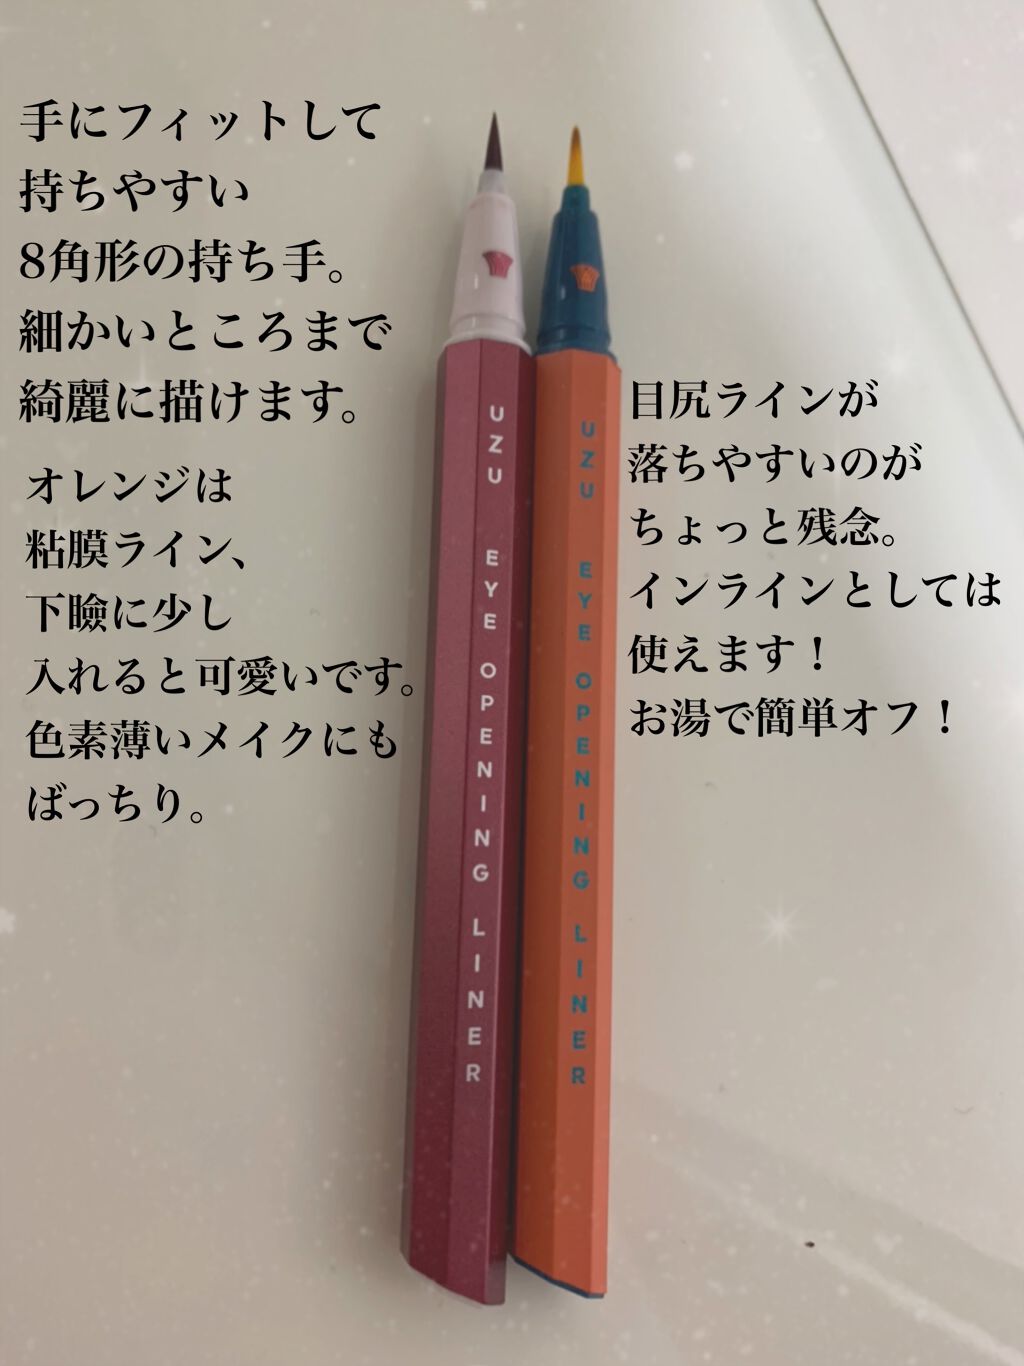 手にフィットして
持ちやすい
8角形の持ち手。
細かいところまで
綺麗に描けます。
オレンジは
粘膜ライン、
下瞼に少し
入れると可愛いです。
色素薄いメイクにも
ばっちり。
UZU EYE OPENING LINER
UZU EYE OPENING LINER
目尻ラインが
落ちやすいのが
ちょっと残念。
インラインとしては
使えます！
お湯で簡単オフ！